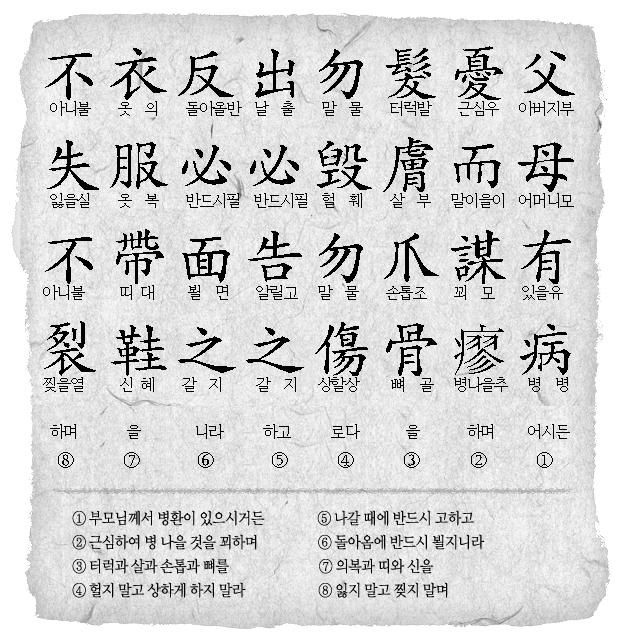 父 아버지부 母 어머니모 有 있을유 病 병 병 어시든 ①
憂 근심우 而 말이을이 謀 꾀 모 瘳 병나을추 하며 ②
髮 터럭발 膚 살 부 爪 손톱조 骨 뼈 골 을 ③
勿 말 물 毁 헐 훼 勿 말 물 傷 상할상 로다 ④
出 날 출 必 반드시필 告 알릴고 之 갈 지 하고 ⑤
反 돌아올반 必 반드시필 面 뵐 면 之 갈 지 니라 ⑥
衣 옷 의 服 옷 복 帶 띠 대 鞋 신 혜 을 ⑦
不 아니불 失 잃을실 不 아니불 裂 찢을열 하며 ⑧
① 부모님께서 병환이 있으시거든
② 근심하여 병 나을 것을 꾀하며
③ 터럭과 살과 손톱과 뼈를
④ 헐지 말고 상하게 하지 말라
⑤ 나갈 때에 반드시 고하고
⑥ 돌아옴에 반드시 뵐지니라
⑦ 의복과 띠와 신을
⑧ 잃지 말고 찢지 말며